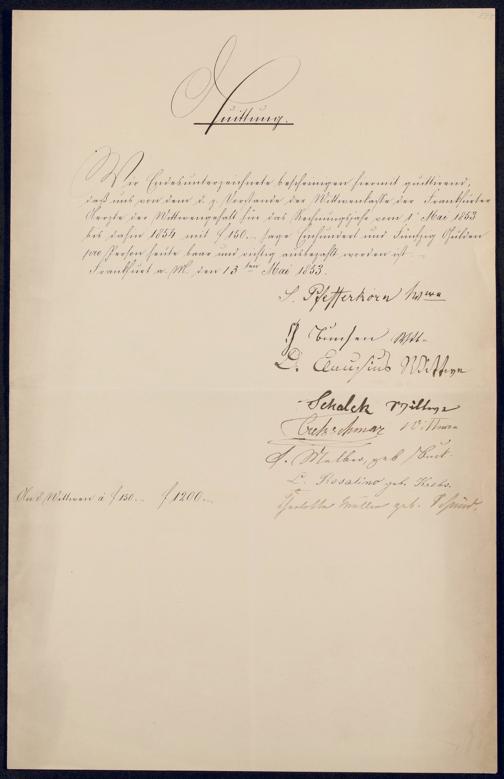 Quittung.
Wir Endesunterzeichnete bescheinigen hiermit quittirend,
daß uns von dem d. z. Vorstande der Wittwenkasse der Frankfurter
Aerzte der Wittwengehalt für das Rechnungsjahr vom 1 Mai 1853
bis dahin 1854 mit f 150.– sage Einhundert und Fünfzig Gulden
pro Person heute baar und richtig ausbezahlt worden ist.
Frankfurt a. M. den 13ten Mai 1853.
S. Pfefferkorn Wwe
Bunsen Wtt.
Clausius Wittwe
Schalck Wittwe
Kretschmar Wittwe
Melber, geb
An 8 Wittwen à f 150.– f 1200.–
L. Rosalino geb. Krebs.
Charlotte Müller geb. Schmid.